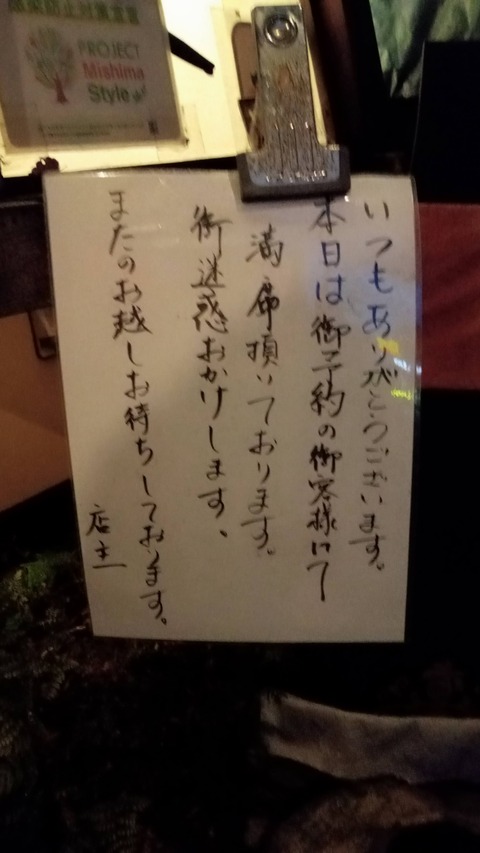 感染防止対策宣言
PROJECT
Mishima
Style
いつもありがとうございます。
本日は御予約の御客様にて
満席頂いております。
御迷惑おかけします、
またのお越しお待ちしております。
店主